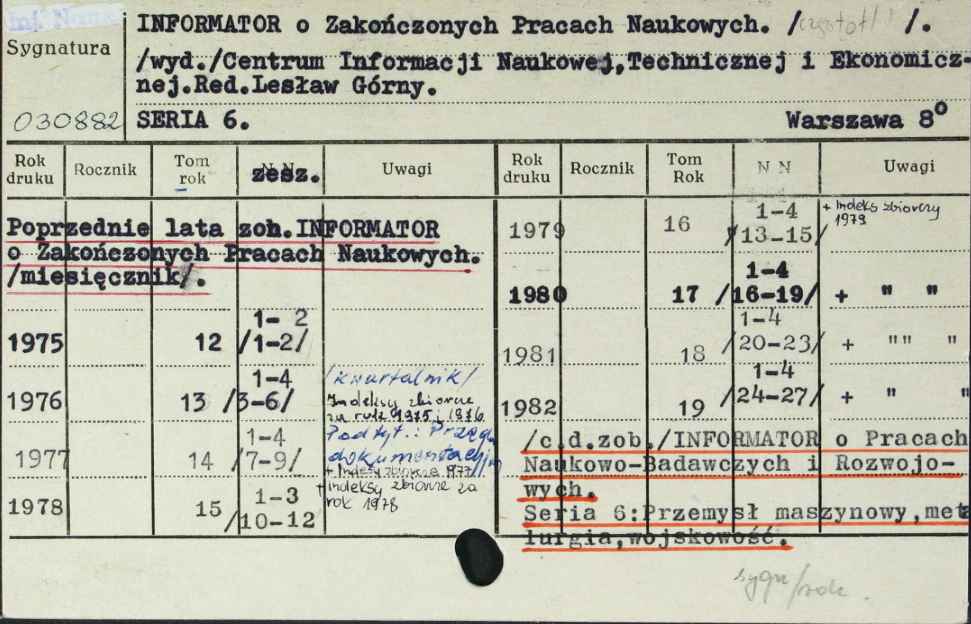 Sygnatura
030882
INFORMATOR o Zakończonych Pracach Naukowych. / /.
/wyd./Centrum Informacji Naukowej,Technicznej i Ekonomicz-
nej.Red.Lesław Górny.
SERIA 6. Warszawa 8°
Rok druku Rocznik Tom rok zesz. Uwagi
Poprzednie lata zob.INFORMATOR
o Zakończonych Pracach Naukowych.
/miesięcznik/.
1975 12 1- 2 /1-2/
1976 13 1-4 /3-6/ /kwartalnik/
Indeksy zbiorcze
za rok 1975 i 1976
Podtyt.: Przegl.
dokumentacyjny
1977 14 1-4 /7-9/ + Indeksy zbiorcze 1977
1978 15 1-3 /10-12 + indeksy zbiorcze za
rok 1978
Rok druku Rocznik Tom Rok N N Uwagi
1979 16 1-4 /13-15/ + Indeks zbiorczy
1979
1980 17 1-4 /16-19/ + " "
1981 18 1-4 /20-23/ + "" "
1982 19 1-4 /24-27/ + " "
/c.d.zob./INFORMATOR o Pracach
Naukowo-Badawczych i Rozwojo-
wych.
Seria 6:Przemysł maszynowy,meta
lurgia,wojskowość.
sygn/rok.